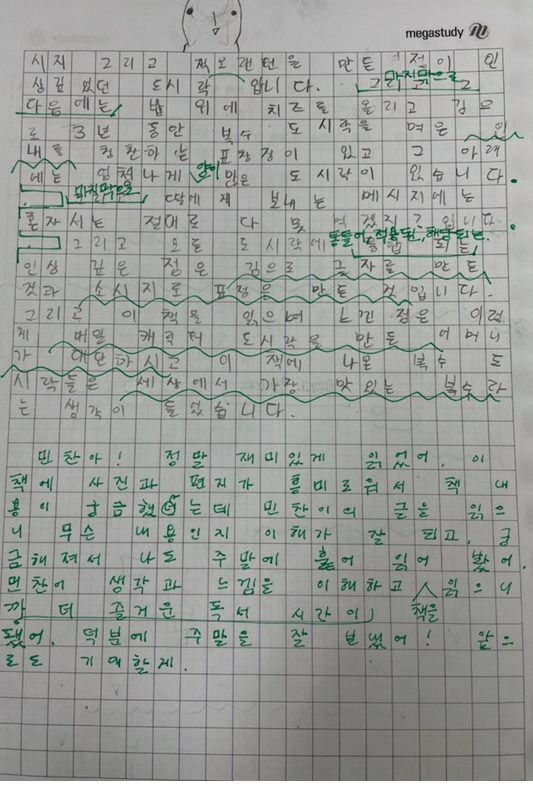 megastudy
시지 그리고 만든 점이 인
상깊 었던 도시락 입니다. 그리고 그
마지막으로
다음에는 밥 위에 치즈를 올리고 김으
로 3년 동안 복수 도시락을 먹은 인
내를 칭찬하는 표창장이 있고 그 아래
에는 엄청나게 많은 도시락이 있습니다.
양이
마지막으로 딸에게 보내는 메시지에는
혼자서는 절대로 다 못 먹겠지? 입니다.
통틀어, 적용된, 해당되는.
그리고 모든 도시락에 통합 되는
인상 깊은 점은 김으로 글자를 만든
것과 소시지로 표정을 만든 것 입니다.
그리고 이 책을 읽으며 느낀 점은 이렇
게 매일 캐릭터 도시락을 만든 어머니
가 대단하시고 이 책에 나온 복수 도
시락들은 세상에서 가장 맛있는 복수라
는 생각이 들었습니다.
민찬아! 정말 재미있게 읽었어. 이
책에 사진과 편지가 흥미로워서 책 내
용이 궁금했는데 민찬이의 글을 읽으
니 무슨 내용인지 이해가 잘 되고, 궁
금해져서 나도 주말에 훑어 읽어 봤어.
민찬이 생각과 느낌을 이해하고 읽으니
책을
깡 더 즐거운 독서 시간이
됐어. 덕분에 주말을 잘 보냈어! 앞으
로도 기대할게.